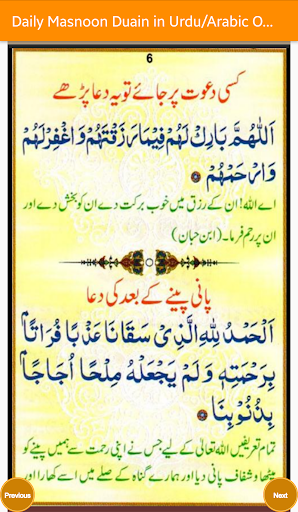 Daily Masnoon Duain in Urdu/Arabic O...
6
کسی دعوت پر جائے تو یہ دعا پڑھے
اَللّٰهُمَّ بَارِكْ لَهُمْ فِيْمَا رَزَقْتَهُمْ وَاغْفِرْ لَهُمْ
وَارْحَمْهُمْ
اے اللہ! ان کے رزق میں خوب برکت دے ان کو بخش دے اور
ان پر رحم فرما۔ (ابن حبان)
پانی پینے کے بعد کی دعا
اَلْحَمْدُ لِلّٰهِ الَّذِیْ سَقَانَا عَذْبًا فُرَاتًا
بِرَحْمَتِهٖ وَلَمْ يَجْعَلْهُ مِلْحًا اُجَاجًا
بِذُنُوْبِنَا
تمام تعریفیں اللہ تعالیٰ کے لیے جس نے اپنی رحمت سے ہمیں پینے کو
میٹھا و شفاف پانی دیا اور ہمارے گناہ کے صلے میں اسے کھارا اور
Previous
Next